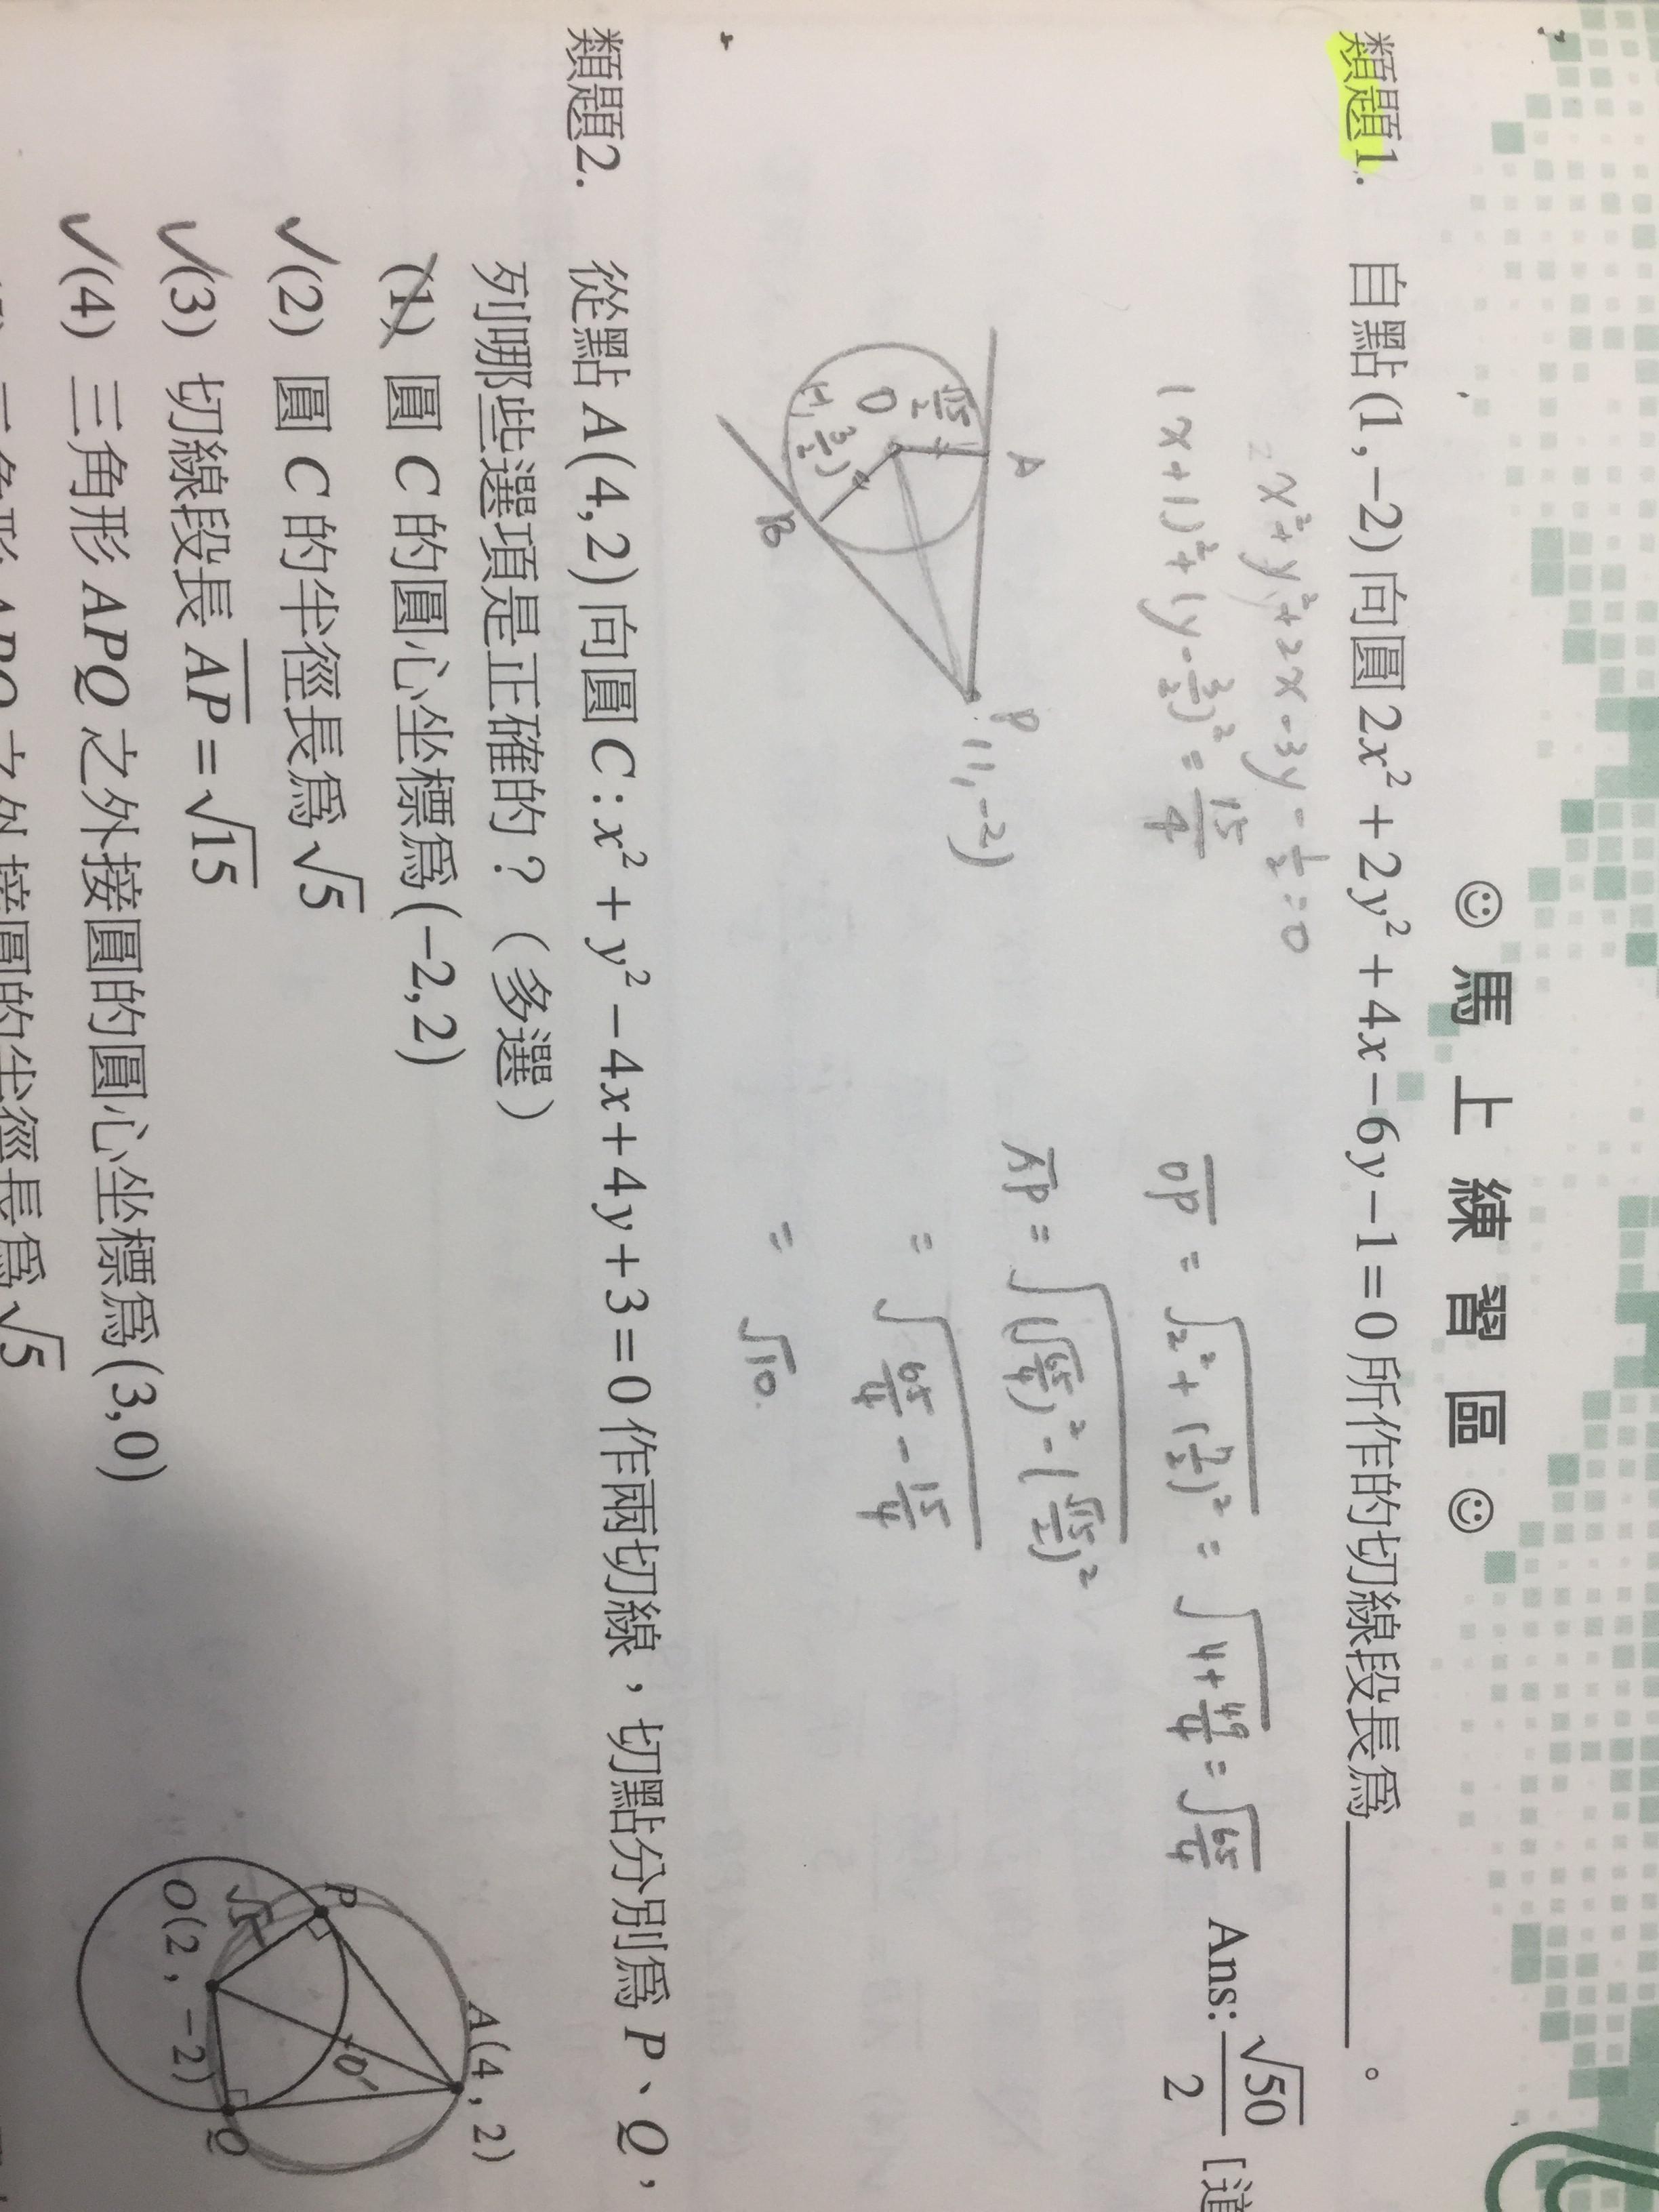 ☺ 馬 上 練 習 區 ☺
類題1. 自點(1,−2)向圓2x²+2y²+4x−6y−1=0所作的切線段長為______。
Ans: √50/2 [道
x²+y²+2x-3y-1/2=0
(x+1)²+(y-3/2)²=15/4
OP = √(2²+(7/2)²) = √(4+49/4) = √(65/4)
AP = √((√(65/4))²-(√15/2)²)
= √(65/4-15/4)
= √10.
A
√15/2
O
(-1, 3/2)
B
P(1,-2)
類題2. 從點A(4,2)向圓C:x²+y²−4x+4y+3=0作兩切線，切點分別為P、Q，
列哪些選項是正確的？（多選）
(1) 圓C的圓心坐標為(−2,2)
✓(2) 圓C的半徑長為√5
✓(3) 切線段長AP=√15
✓(4) 三角形APQ之外接圓的圓心坐標為(3,0)
三角形APQ之外接圓的半徑長為√5
A(4,2)
P
√5
O'
O(2,−2)
Q